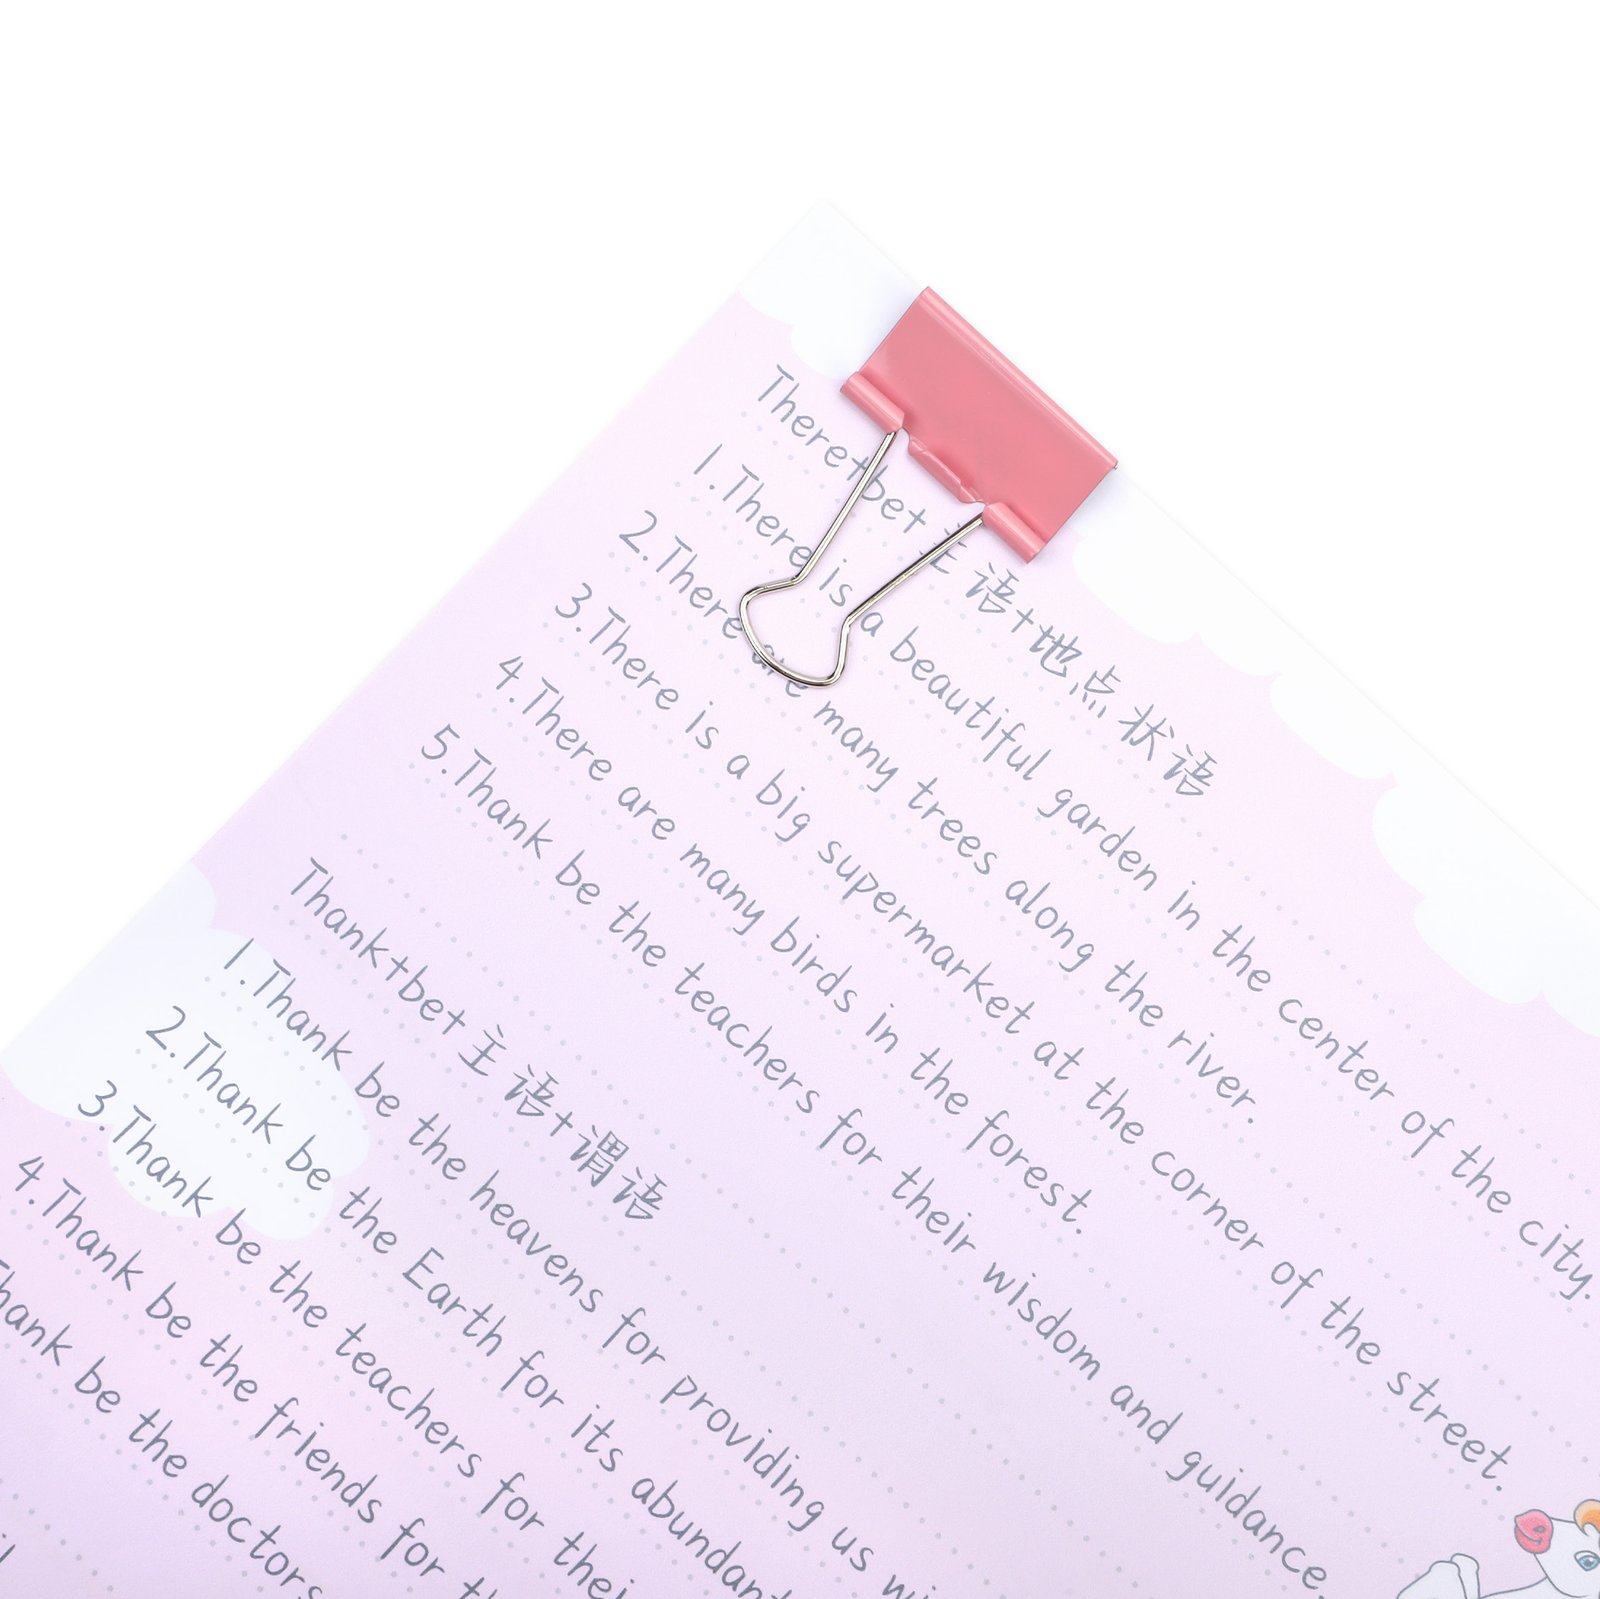 There+be+主语+地点状语
1.There is a beautiful garden in the center of the city.
2.There are many trees along the river.
3.There is a big supermarket at the corner of the street.
4.There are many birds in the forest.
5.Thank be the teachers for their wisdom and guidance.
Thank+be+主语+谓语
1.Thank be the heavens for providing us
2.Thank be the Earth for its abundant
3.Thank be the teachers for their
4.Thank be the friends for
Thank be the doctors